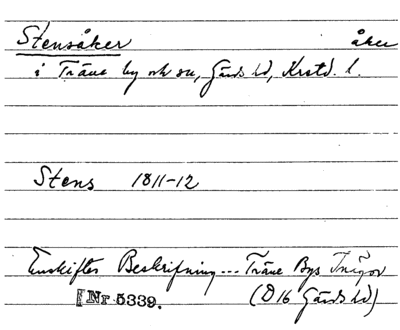 Stensåker åker
i Träne by och sn, Gärds hd, Krstd. l.
Stens 1811-12
Enskiftes Beskrifning... Träne Bys Inägor
[Nr 5339. (D16 Gärds hd)